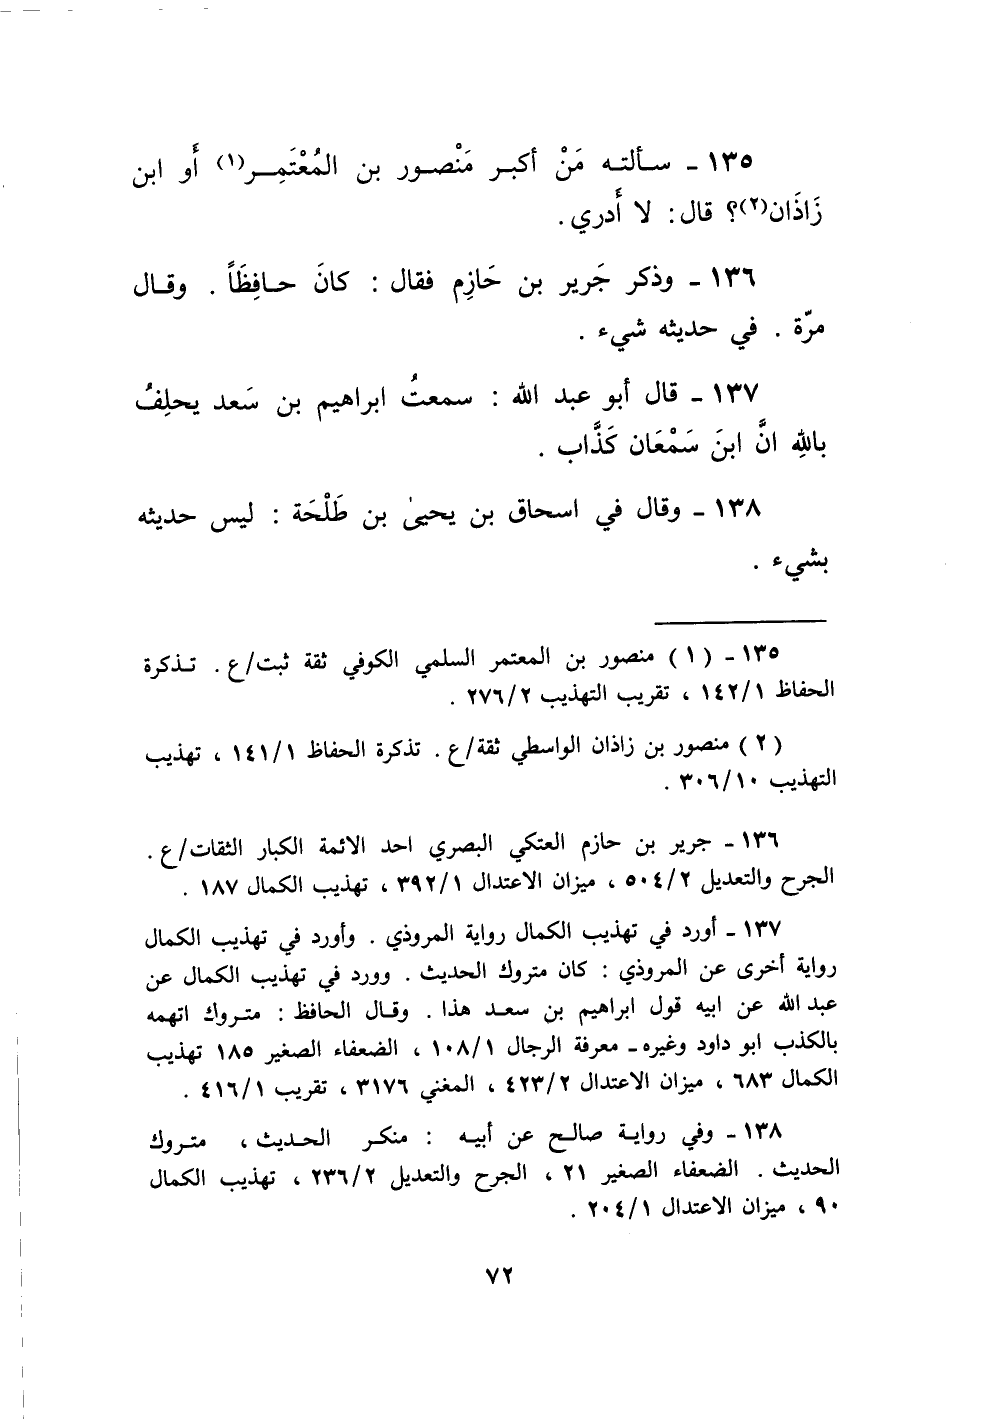 ١٣٥ ـ سـألتـه مَنْ أكبـر مَنْصـور بن المُعْتَمِـر(١) أَو ابن
زَاذَان(٢)؟ قال: لا أَدري.
١٣٦ ـ وذكر جَرير بن حَازِم فقال : كانَ حـافِظَاً . وقـال
مرّة . في حديثه شيء .
١٣٧ ـ قال أبو عبد الله : سمعتُ ابراهيم بن سَعد يحلِفُ
باللهِ انَّ ابنَ سَمْعَان كَذَّاب .
١٣٨ ـ وقال في اسحاق بن يحيىٰ بن طَلْحَة : ليس حديثه
بشيء .
١٣٥ ـ (١) منصور بن المعتمر السلمي الكوفي ثقة ثبت/ع . تـذكرة
الحفاظ ١٤٢/١ ، تقريب التهذيب ٢٧٦/٢ .
(٢) منصور بن زاذان الواسطي ثقة/ع . تذكرة الحفاظ ١٤١/١ ، تهذيب
التهذيب ٣٠٦/١٠ .
١٣٦ ـ جرير بن حازم العتكي البصري احد الائمة الكبار الثقات/ع .
الجرح والتعديل ٥٠٤/٢ ، ميزان الاعتدال ٣٩٢/١ ، تهذيب الكمال ١٨٧ .
١٣٧ ـ أورد في تهذيب الكمال رواية المروذي . وأورد في تهذيب الكمال
رواية أخرى عن المروذي : كان متروك الحديث . وورد في تهذيب الكمال عن
عبد الله عن ابيه قول ابراهيم بن سعـد هذا . وقـال الحافظ : متـروك اتهمه
بالكذب ابو داود وغيره ـ معرفة الرجال ١٠٨/١ ، الضعفاء الصغير ١٨٥ تهذيب
الكمال ٦٨٣ ، ميزان الاعتدال ٤٢٣/٢ ، المغني ٣١٧٦ ، تقريب ٤١٦/١ .
١٣٨ ـ وفي روايـة صالـح عن أبيـه : منكـر الحـديث ، متـروك
الحديث . الضعفاء الصغير ٢١ ، الجرح والتعديل ٢٣٦/٢ ، تهذيب الكمال
٩٠ ، ميزان الاعتدال ٢٠٤/١ .
٧٢